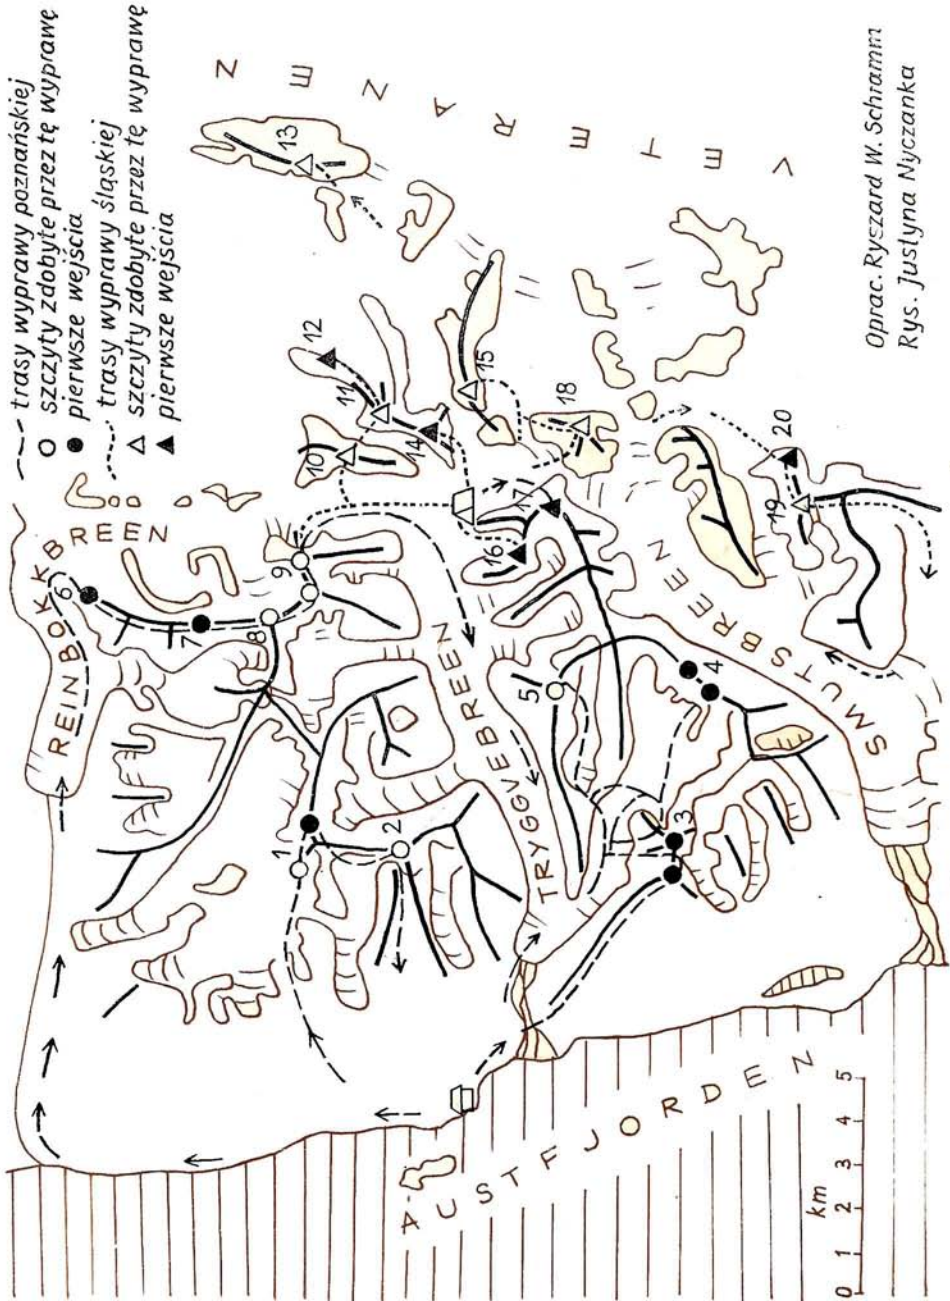 trasy wyprawy poznańskiej
szczyty zdobyte przez tę wyprawę
pierwsze wejścia
trasy wyprawy śląskiej
szczyty zdobyte przez tę wyprawę
pierwsze wejścia
REINBOKKBREEN
VETERANEN
TRYGGVEBREEN
SMUTSBREEN
AUSTFJORDEN
1
2
3
4
5
6
7
8
9
10
11
12
13
14
15
16
17
18
19
20
km
0 1 2 3 4 5
Oprac. Ryszard W. Schramm
Rys. Justyna Nyczanka